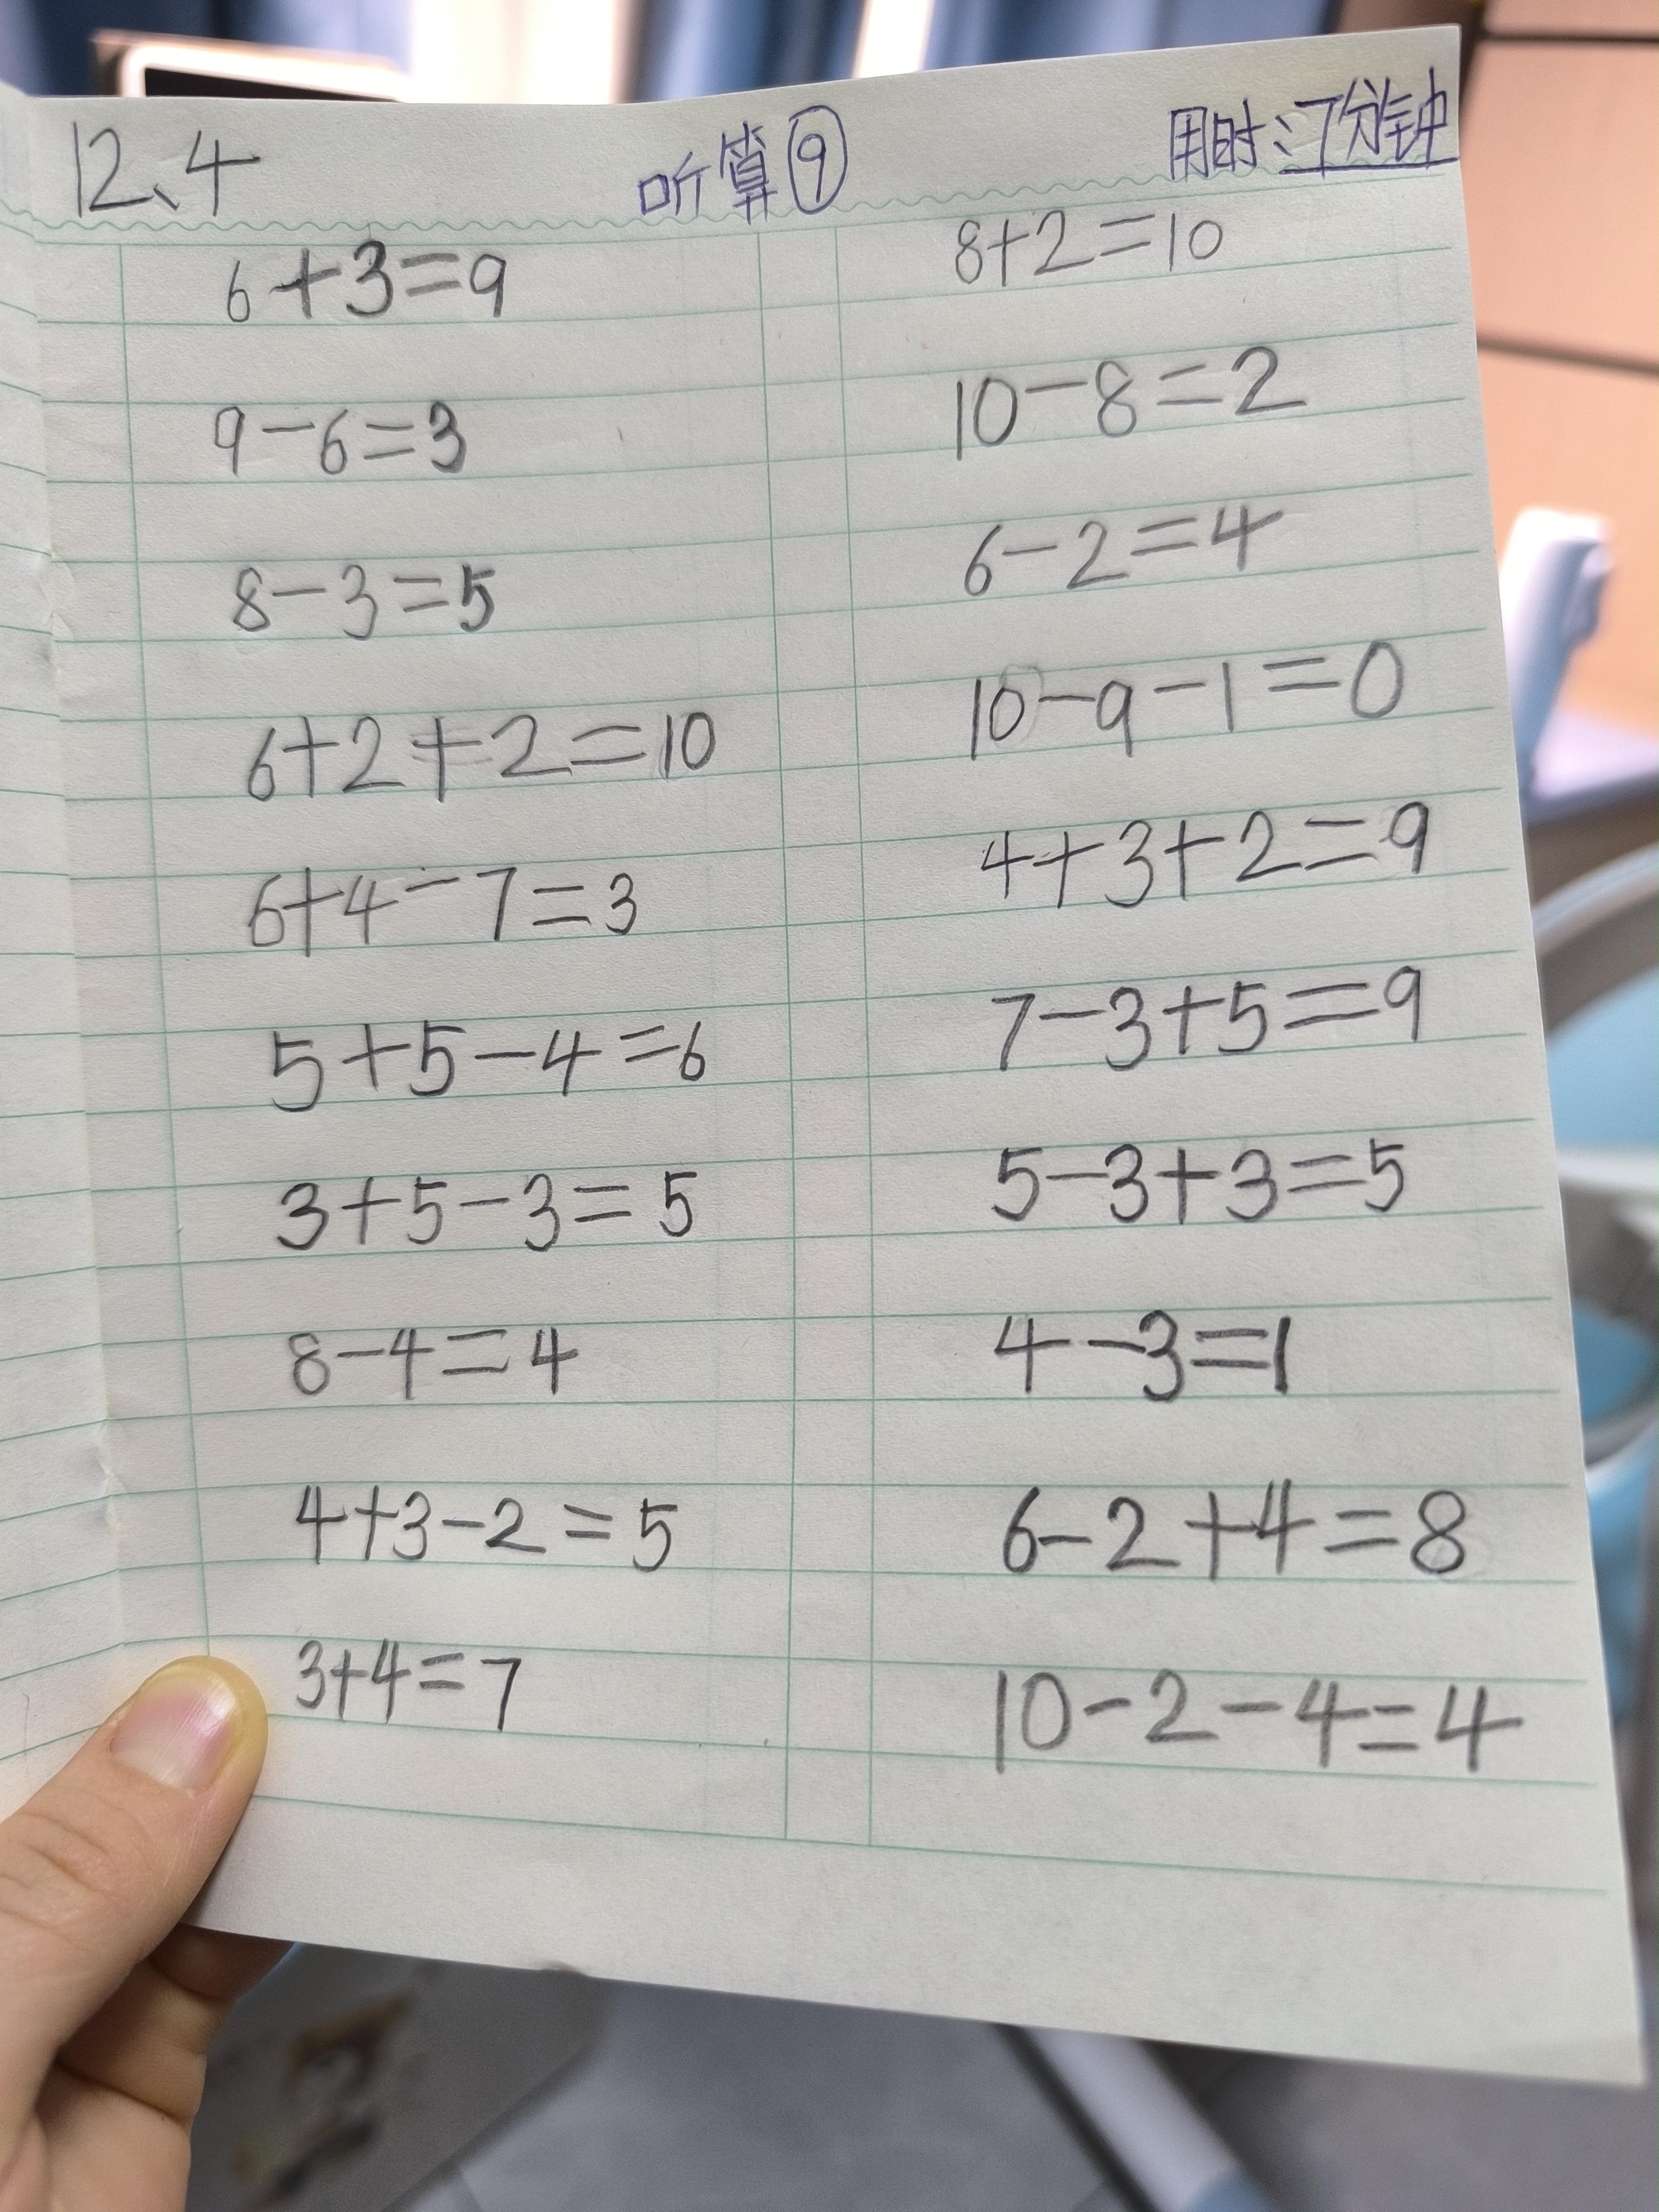 12、4 听算⑨ 用时:7分钟
6+3=9
9-6=3
8-3=5
6+2+2=10
6+4-7=3
5+5-4=6
3+5-3=5
8-4=4
4+3-2=5
3+4=7
8+2=10
10-8=2
6-2=4
10-9-1=0
4+3+2=9
7-3+5=9
5-3+3=5
4-3=1
6-2+4=8
10-2-4=4